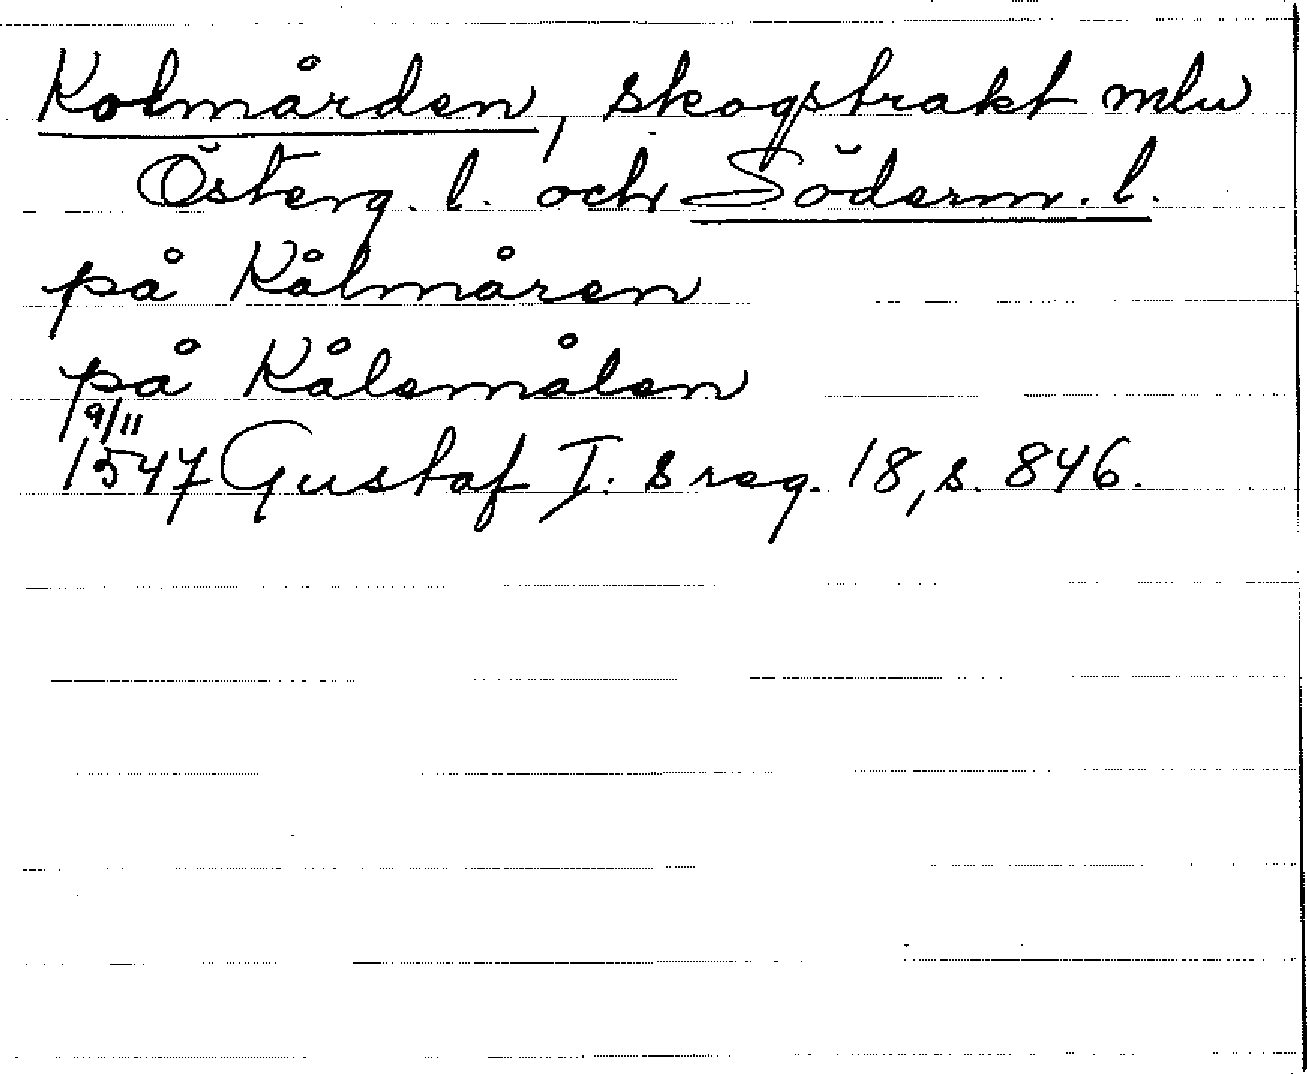 Kolmården, skogstrakt mlu
Österg. l. och Söderm. l.
på Kålmåren
på Kålemålen
9/11
1547 Gustaf I:s reg. 18, s. 846.